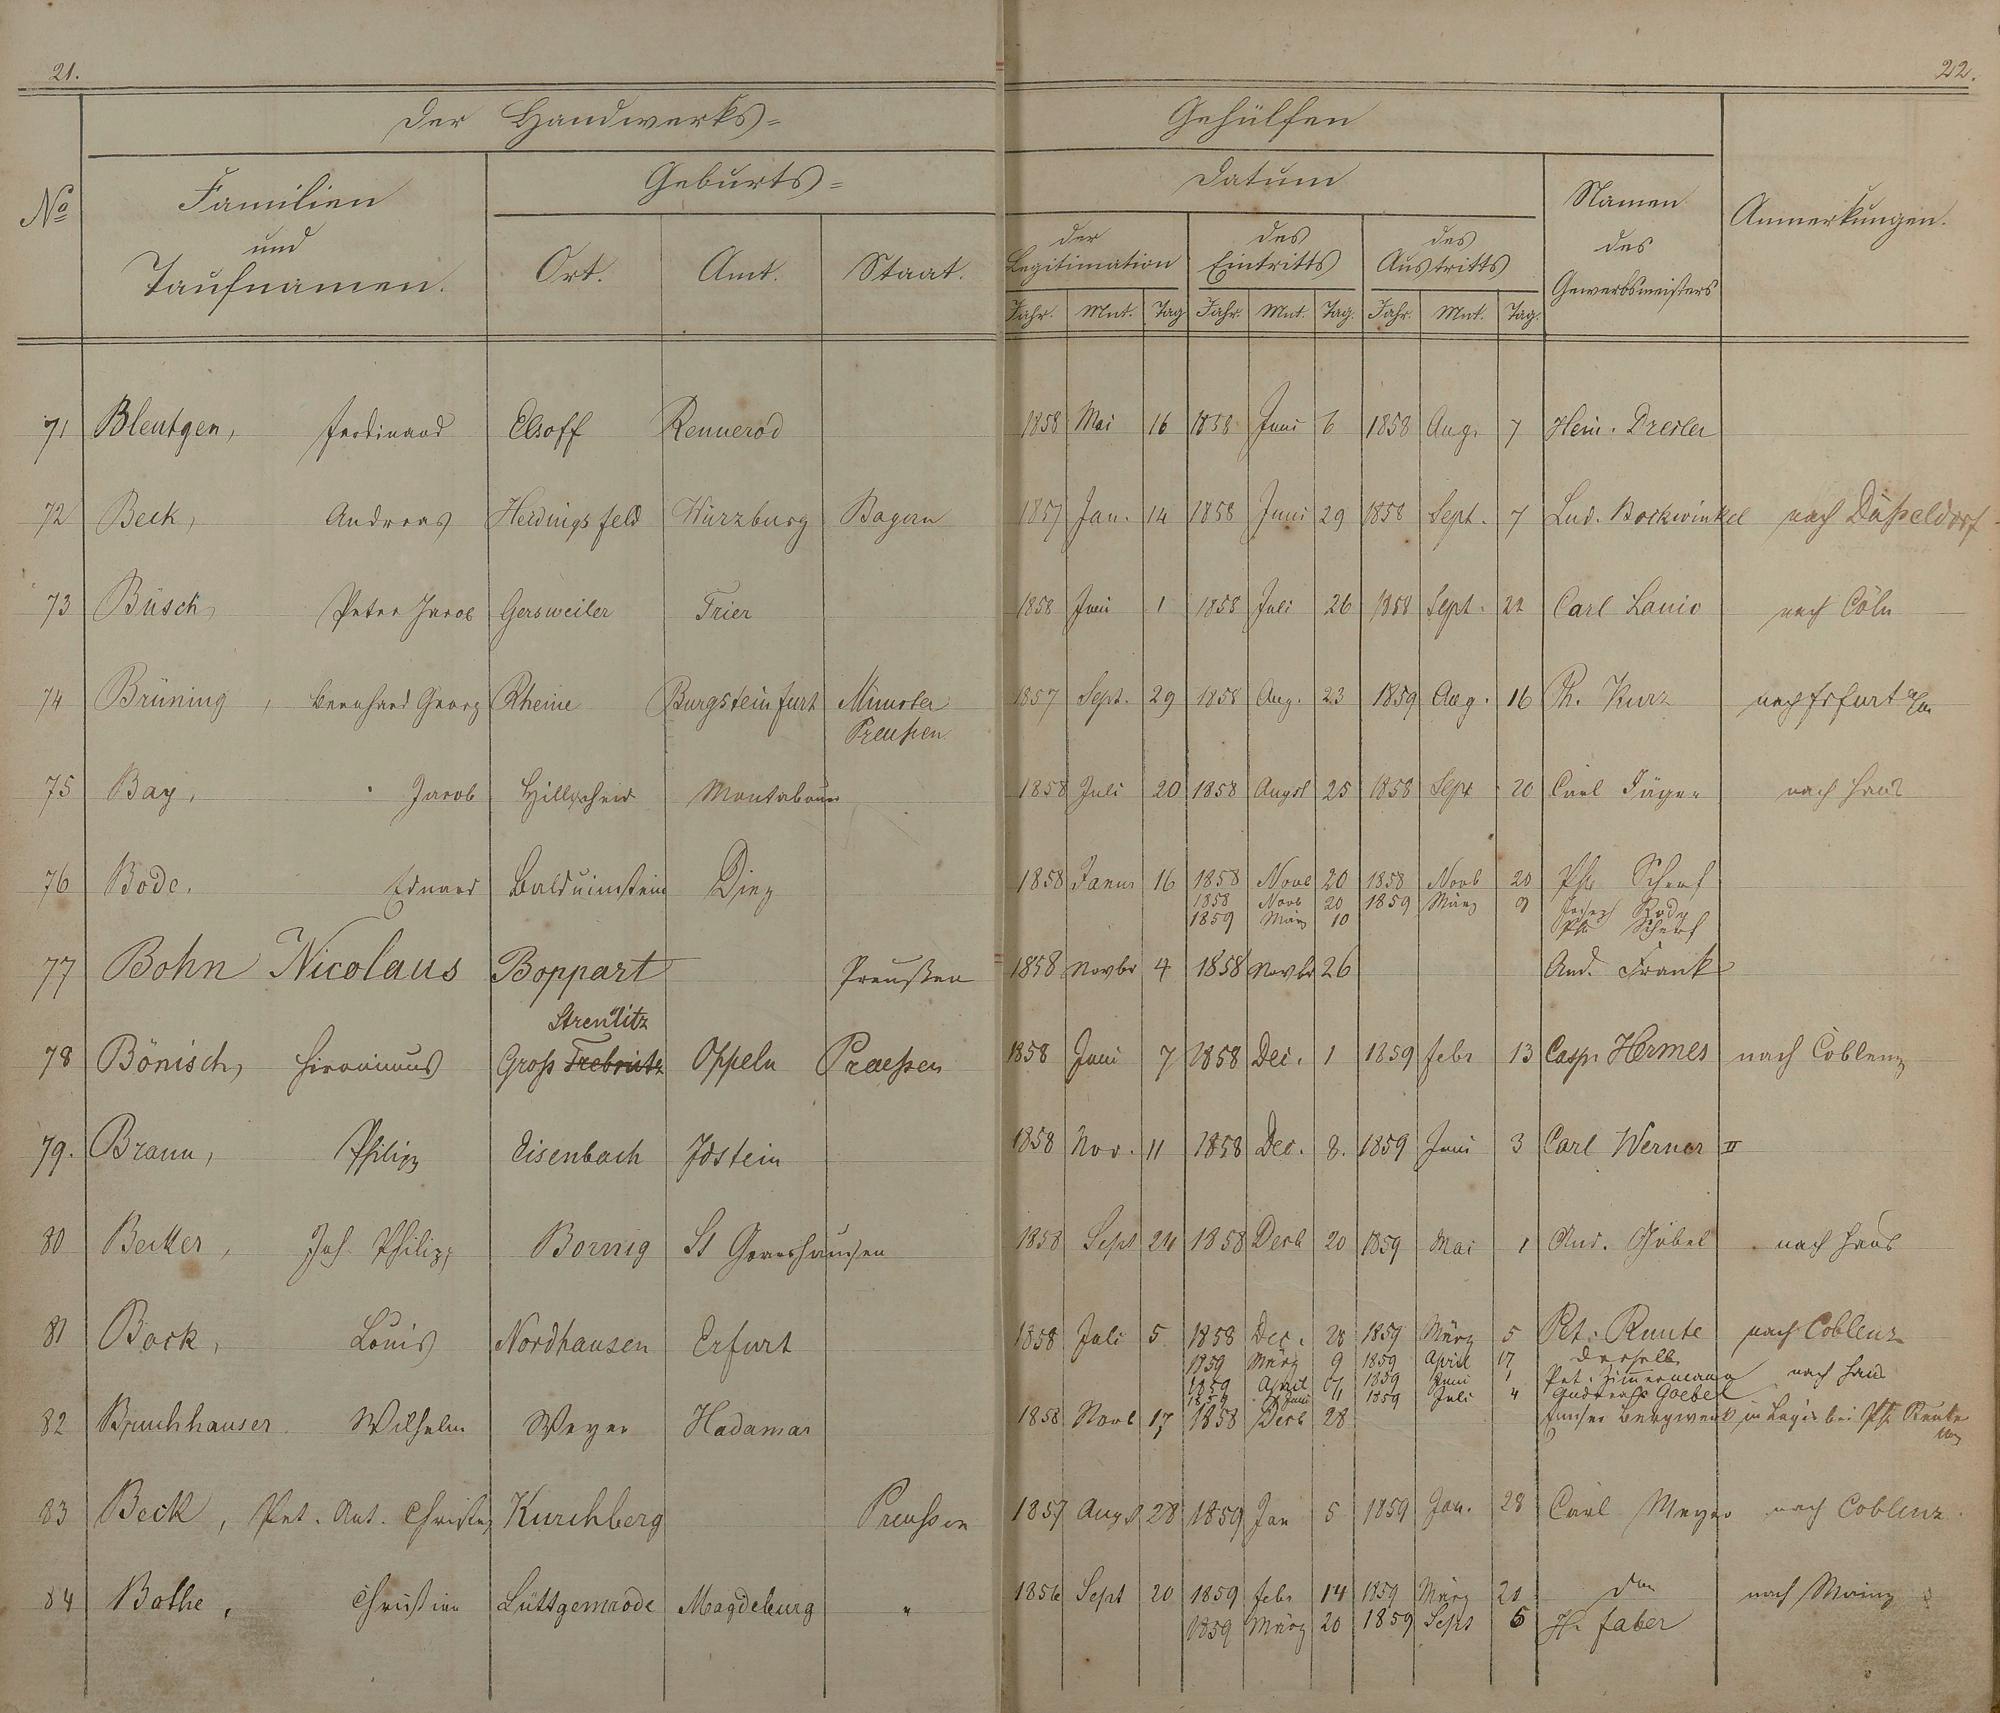 21.
22.
Der Handwerks=
Gehülfen
No
Familien
und
Taufnamen.
Geburts=
Ort.
Amt.
Staat.
Datum
der
Legitimation
des
Eintritts
des
Austritts
Jahr. Mnt. Tag Jahr. Mnt. Tag. Jahr. Mnt. Tag.
Namen
des
Gewerbsmeisters
Anmerkungen.
71 Bleutgen, Ferdinand Elsoff Rennerod 1858 Mai 16 1858 Juni 6 1858 Aug. 7 Hein. Dresler
72 Beck, Andreas Heidingsfeld Würzburg Bayern 1857 Jan. 14 1858 Juni 29 1858 Sept. 7 Lud. Bockwinkel nach Düsseldorf
73 Büsch, Peter Jacob Gersweiler Trier 1858 Juni 1 1858 Juli 26 1858 Sept. 22 Carl Lanio nach Cöln
74 Brüning, Bernhard Georg Rheine Burgsteinfurt Münster 1857 Sept. 29 1858 Aug. 23 1859 Aug. 16 Ph. Kurz nach Frfurt a/m
Preußen
75 Bay, Jacob Hillscheid Montabaur 1858 Juli 20 1858 Augst 25 1858 Sept 20 Carl Jäger nach Haus
76 Bode, Eduard Balduinstein Diez 1858 Janur 16 1858 Novb 20 1858 Novb 20 Ph. Scherf
1858 Novb 20 1859 März 9 Joseph Rody
1859 März 10 Ph Scherf
77 Bohn Nicolaus Boppart Preußen 1858 Novbr 4 1858 Novbr 26 And. Frank
Strenlitz
78 Bönisch, Hironimus Groß Trebnitz Oppeln Preußen 1858 Juni 7 1858 Dec. 1 1859 Febr 13 Casp. Hermes nach Coblenz
79. Braun, Philipp Eisenbach Idstein 1858 Nov. 11 1858 Dec. 8. 1859 Juni 3 Carl Werner II
80 Becker, Joh. Philipp Bornig St Goarshausen 1858 Sept 24 1858 Decb 20 1859 Mai 1 And. Göbel nach Haus
81 Bock, Louis Nordhausen Erfurt 1858 Juli 5 1858 Dec. 28 1859 März 5 Pet. Runte nach Coblenz
1859 März 9 1859 April 17 Derselbe
1859 April 1859 Juni 1 Pet. Zimmermann nach Haus
1859 Juni 1859 Juli 4 Andreas Goebel
82 Bruchhauser Wilhelm Weyer Hadamar 1858 Novb 17 1858 Decb 28 Emser Bergwerk in Logis bei Ph. Runte
83 Beck, Pet. Ant. Christ. Kirchberg Preussen 1857 Augst 28 1859 Jan 5 1859 Jan. 28 Carl Meyer nach Coblenz.
84 Bothe, Christian Lüttgenrode Magdeburg " 1856 Sept 20 1859 Febr 14 1859 März 20 nach Mainz
1859 März 20 1859 Sept 5 H. Faber